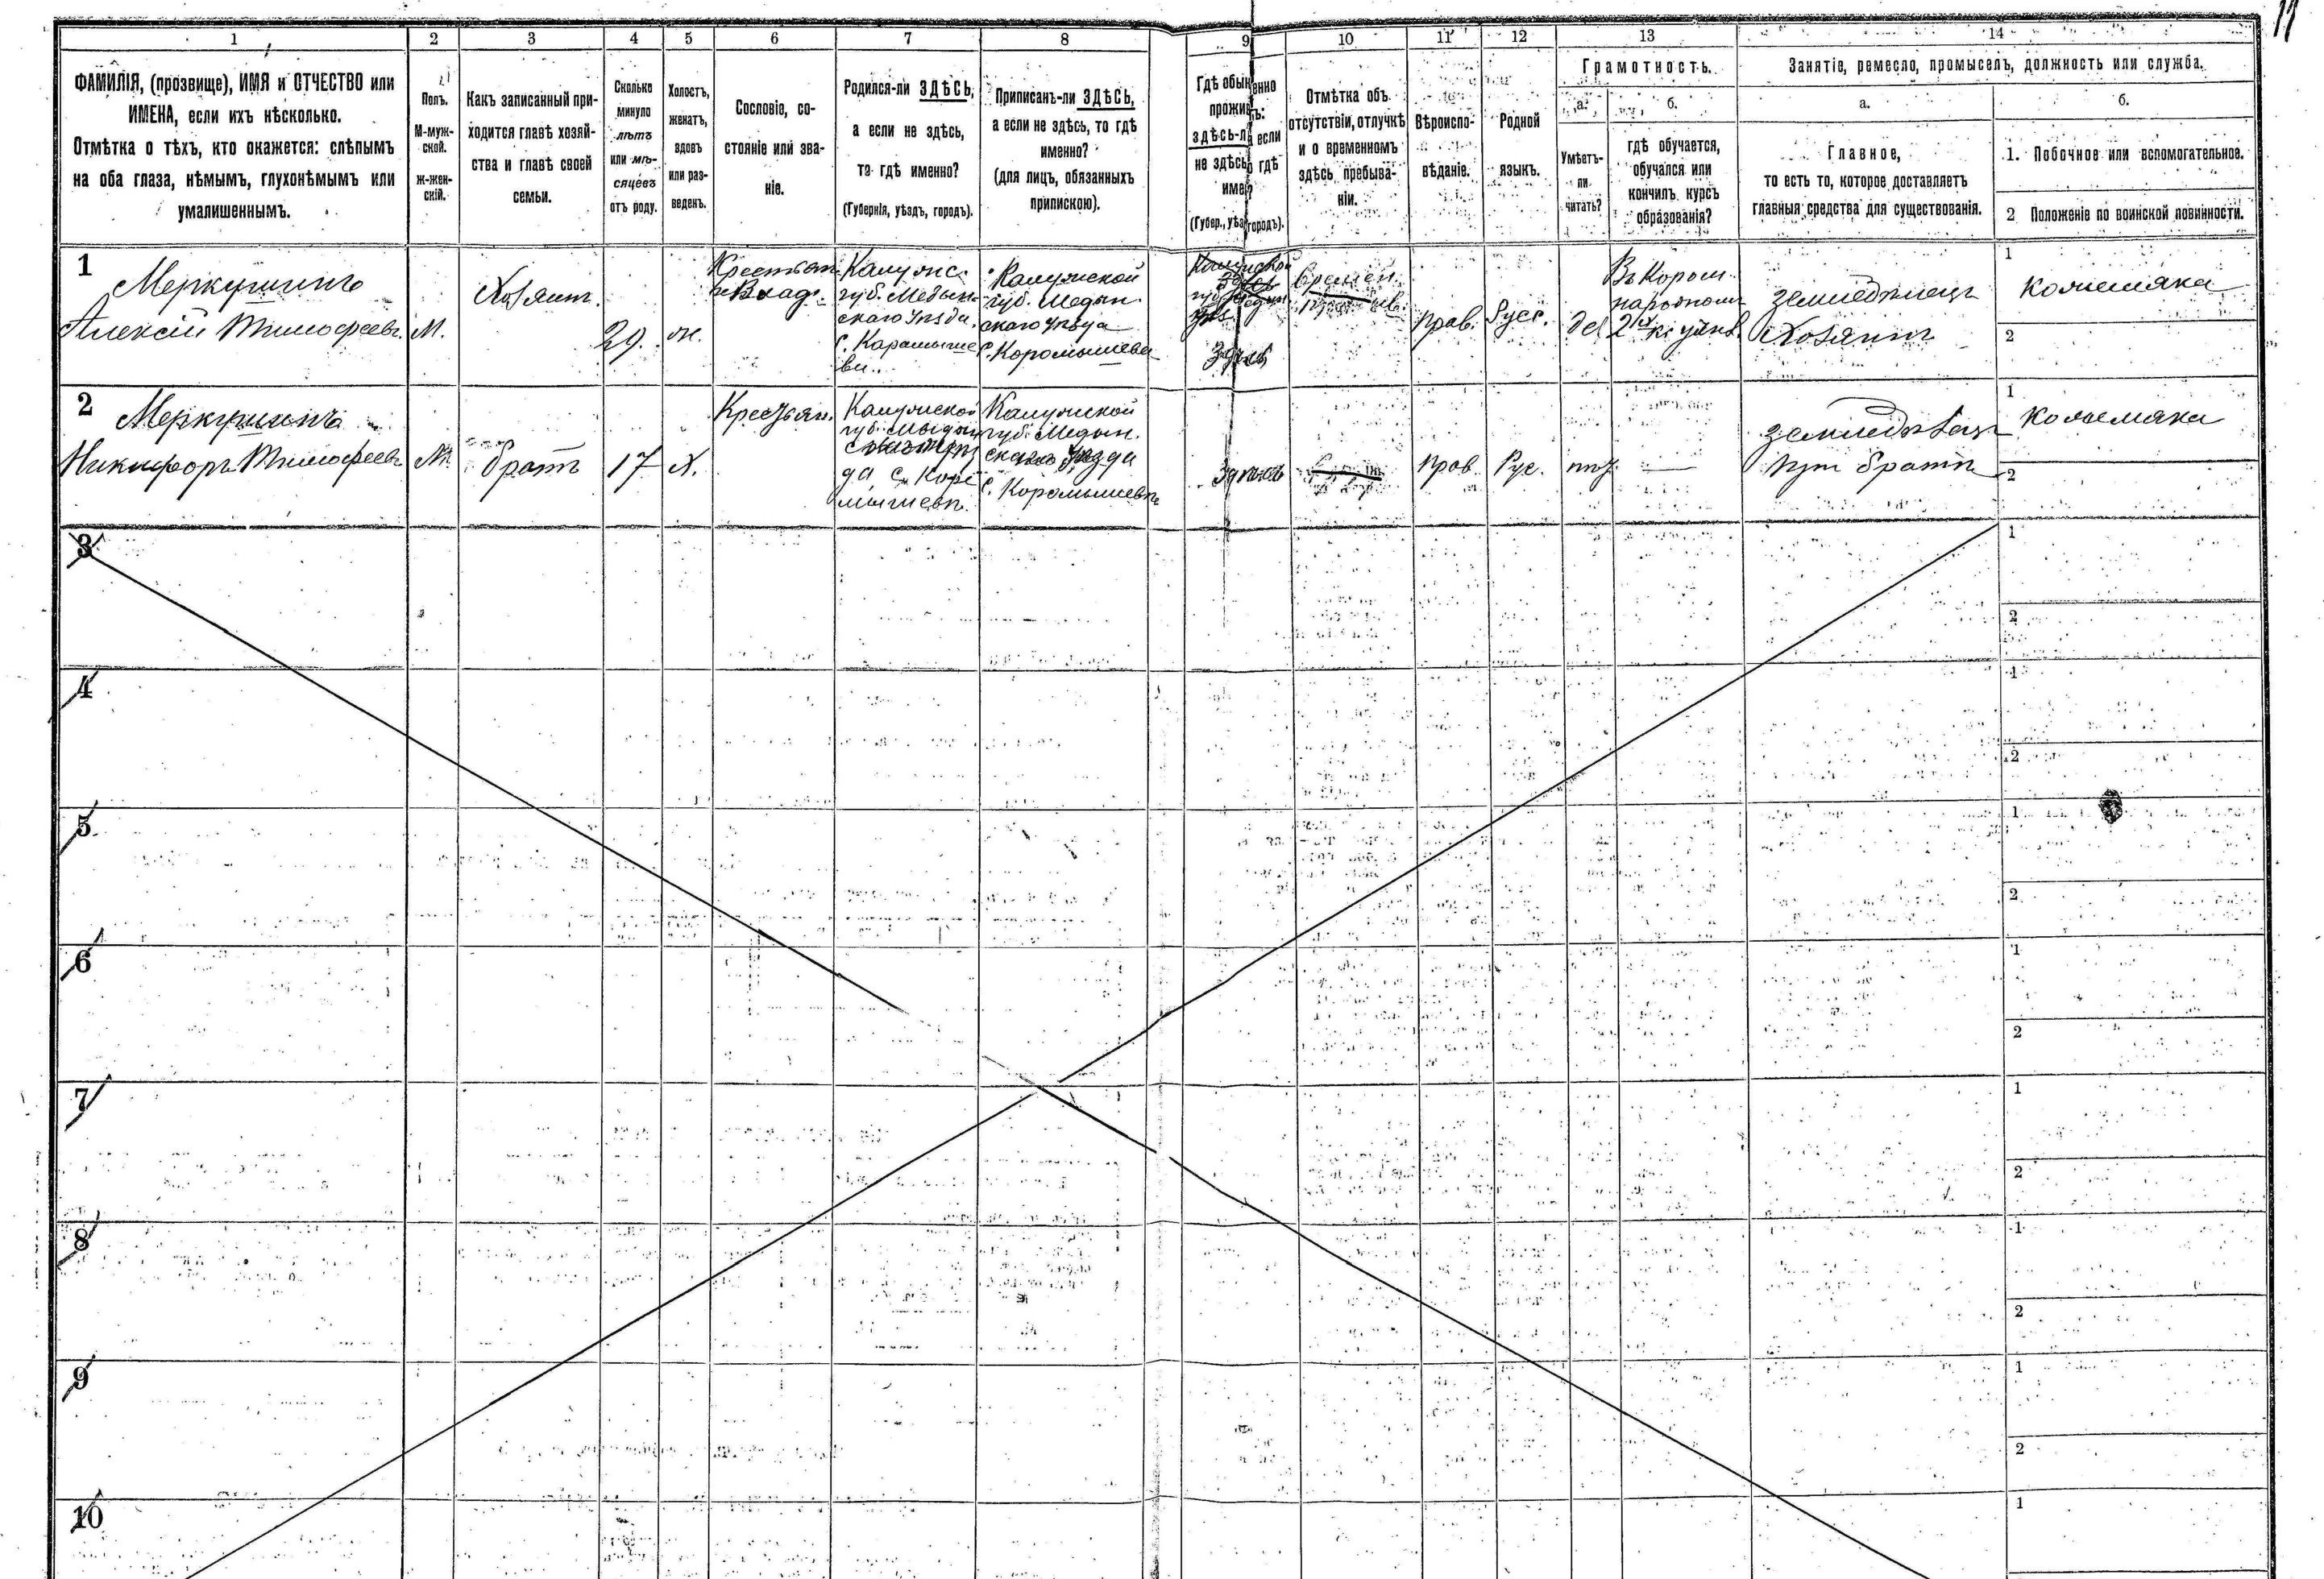 11
1 2 3 4 5 6 7 8 9 10 11 12 13 14
ФАМИЛІЯ, (прозвище), ИМЯ и ОТЧЕСТВО или
ИМЕНА, если ихъ нѣсколько.
Отмѣтка о тѣхъ, кто окажется: слѣпымъ
на оба глаза, нѣмымъ, глухонѣмымъ или
умалишеннымъ.
Полъ.
М-муж-
ской.
Ж-жен-
скій.
Какъ записанный при-
ходится главѣ хозяй-
ства и главѣ своей
семьи.
Сколько
минуло
лѣтъ
или мѣ-
сяцевъ
отъ роду.
Холостъ,
женатъ,
вдовъ
или раз-
веденъ.
Сословіе, со-
стояніе или зва-
ніе.
Родился-ли ЗДѢСЬ,
а если не здѣсь,
то гдѣ именно?
(Губернія, уѣздъ, городъ).
Приписанъ-ли ЗДѢСЬ,
а если не здѣсь, то гдѣ
именно?
(для лицъ, обязанныхъ
припискою).
Гдѣ обыкновенно
проживаетъ:
здѣсь-ли если
не здѣсь, гдѣ
именно?
(Губер., уѣздъ, городъ).
Отмѣтка объ
отсутствіи, отлучкѣ
и о временномъ
здѣсь пребыва-
ніи.
Вѣроиспо-
вѣданіе.
Родной
языкъ.
Грамотность.
а. б.
Умѣетъ-
ли
читать?
гдѣ обучается,
обучался или
кончилъ курсъ
образованія?
Занятіе, ремесло, промыселъ, должность или служба.
а. б.
Главное,
то есть то, которое доставляетъ
главныя средства для существованія.
1. Побочное или вспомогательное.
2 Положеніе по воинской повинности.
1
Меркушинъ
Алексій Тимофеевъ.
М.
Хозяинъ.
29.
ж.
Крестьян.
Калужс.
губ. Медын-
скаго Уѣзда.
с. Карамыше
ви.
Калужской
губ. Медын.
скаго Уѣзда
с. Коромышева
Здѣсь
Прав.
Русс.
Въ Корош.
народном
Земледѣлецъ
Хозяинъ
1
кожемяка
2
2
Меркушинъ
Никифоръ Тимофеевъ
М.
братъ
17
Х.
Крестьян.
Калужской
губ. Медын
да с. Коро
мышевъ.
Калужской
губ. Медын.
скаго Уѣзда
с. Коромышевъ
Здѣсь
Пров.
Рус.
нѣт
Земледѣлецъ
При братѣ
1
кожемяка
2
3
1
2
4
1
2
5
1
2
6
1
2
7
1
2
8
1
2
9
1
2
10
1